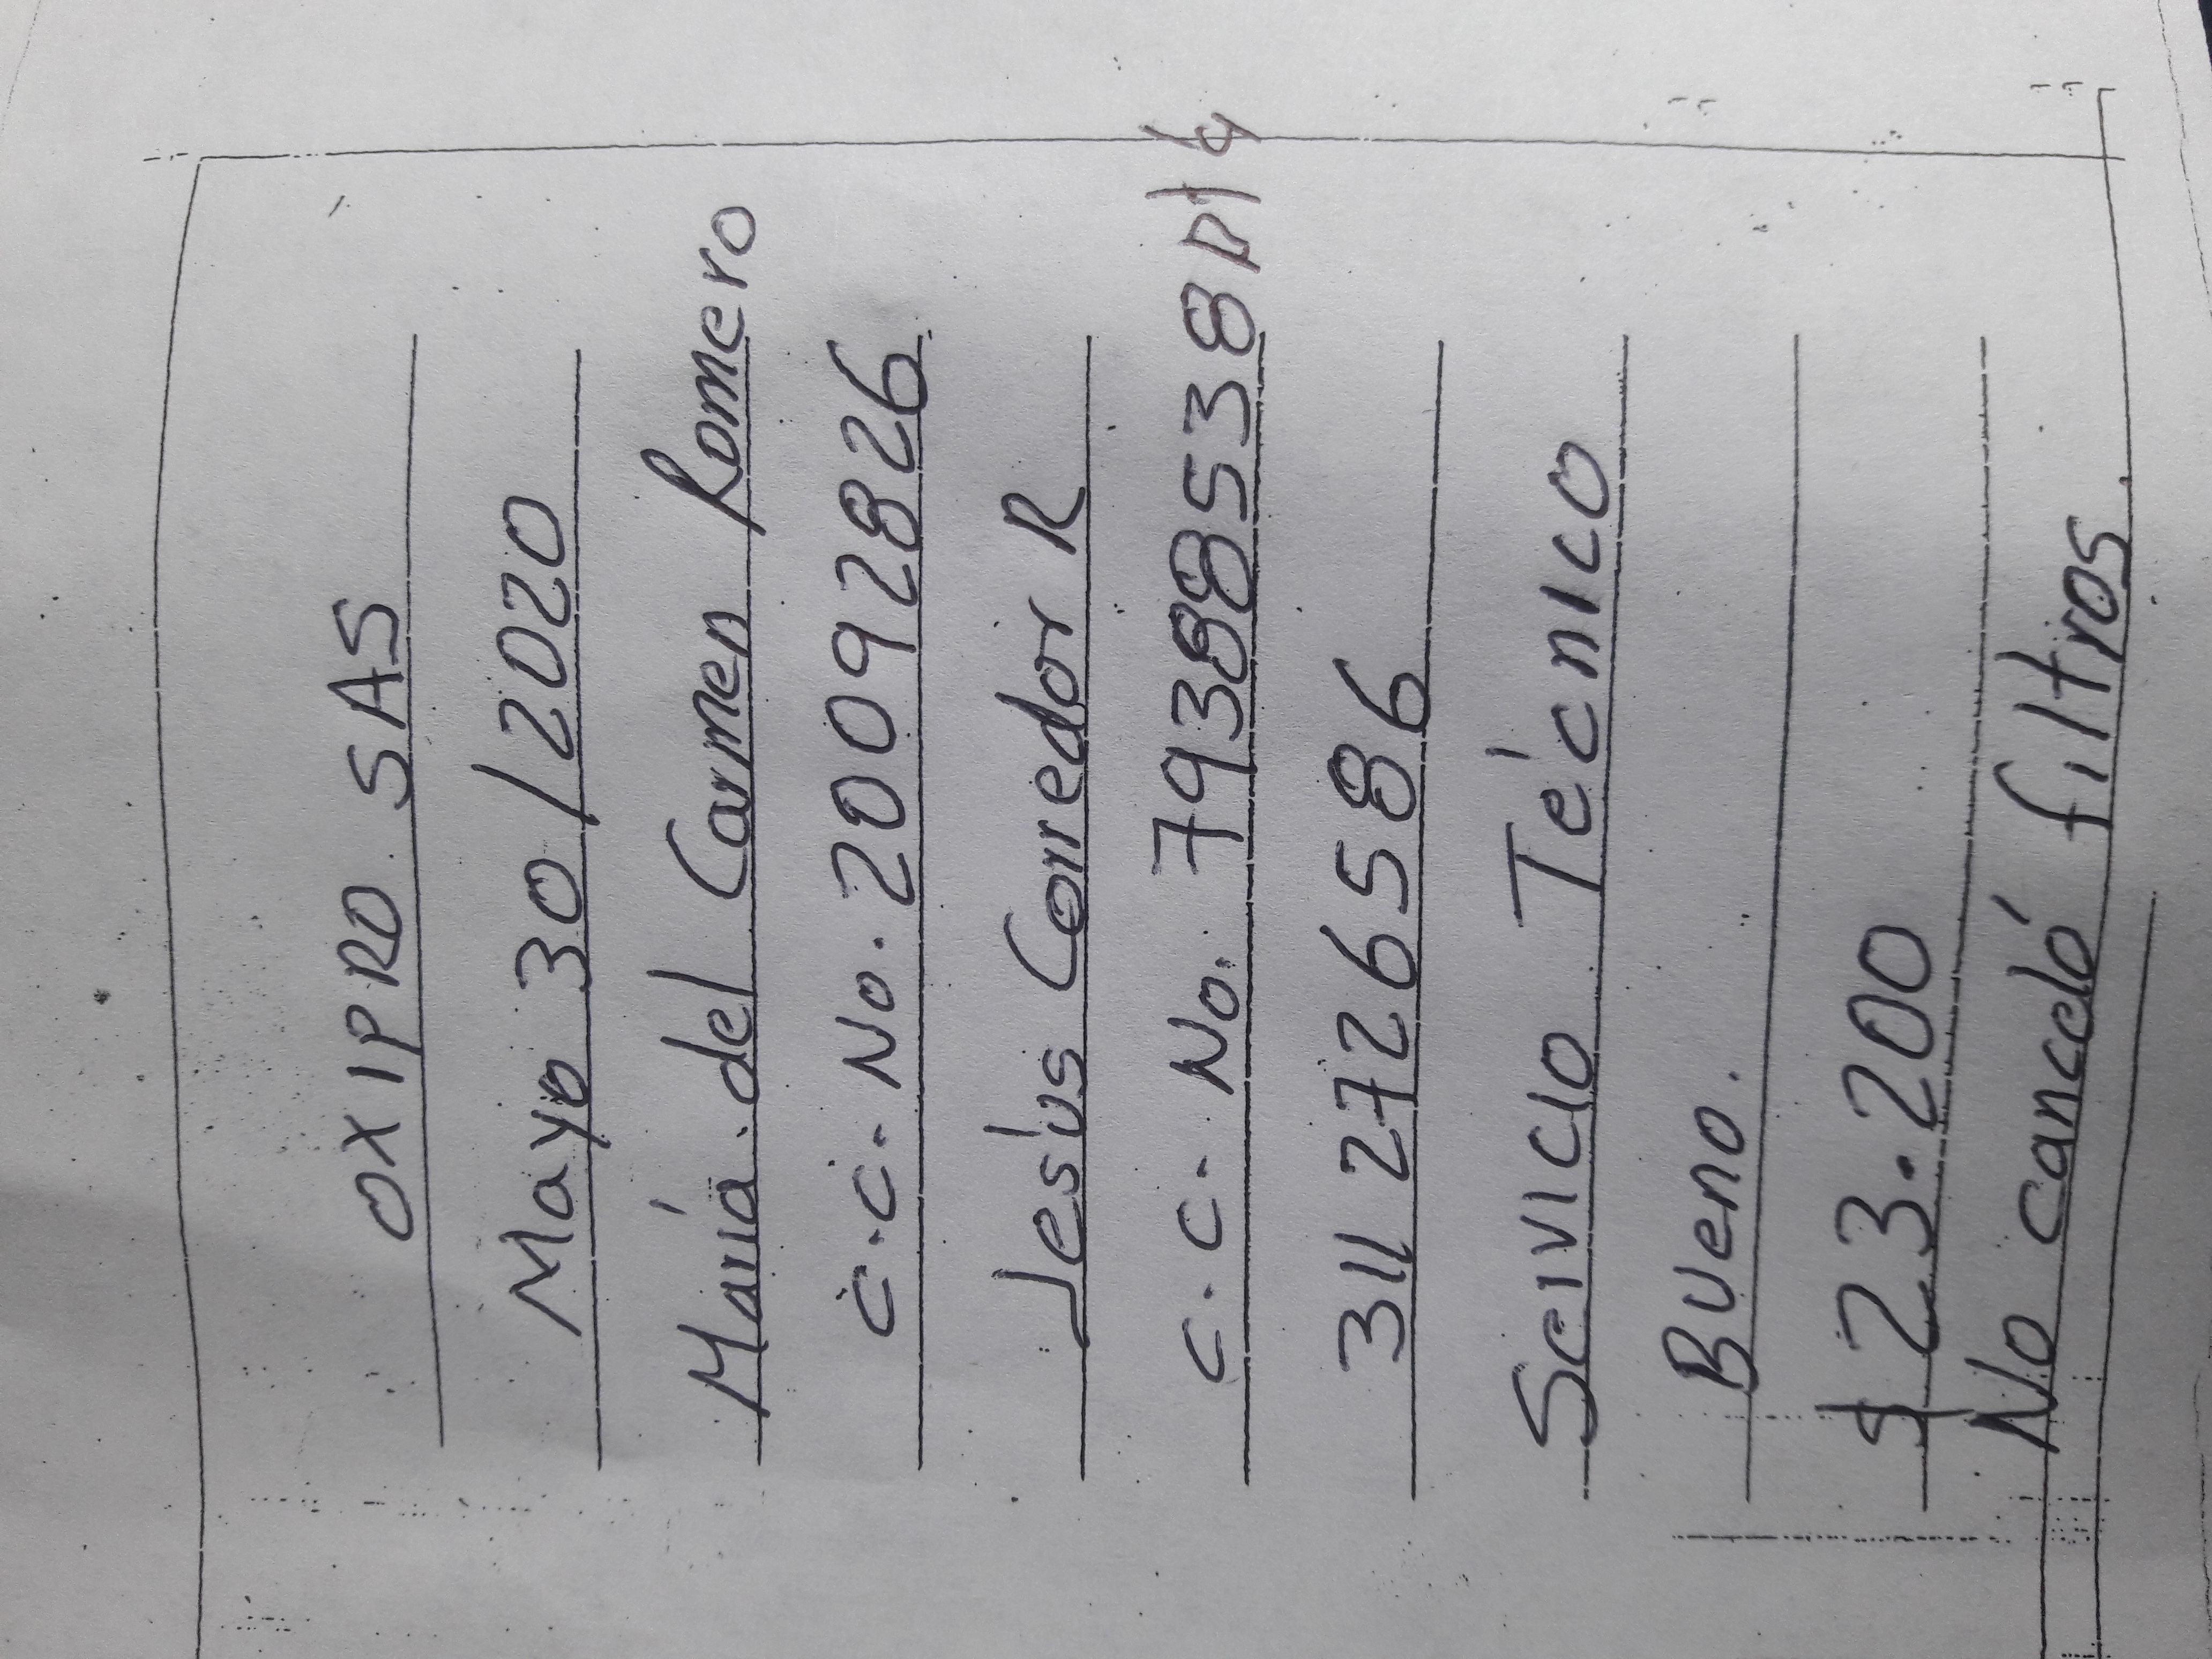 OXIPRO SAS
Mayo 30/2020
María del Carmen Romero
C.C. No. 20092826
Jesús Corredor R
C.C. No. 79388538
311 2726586
Servicio Técnico
Bueno.
$ 23.200
No canceló filtros